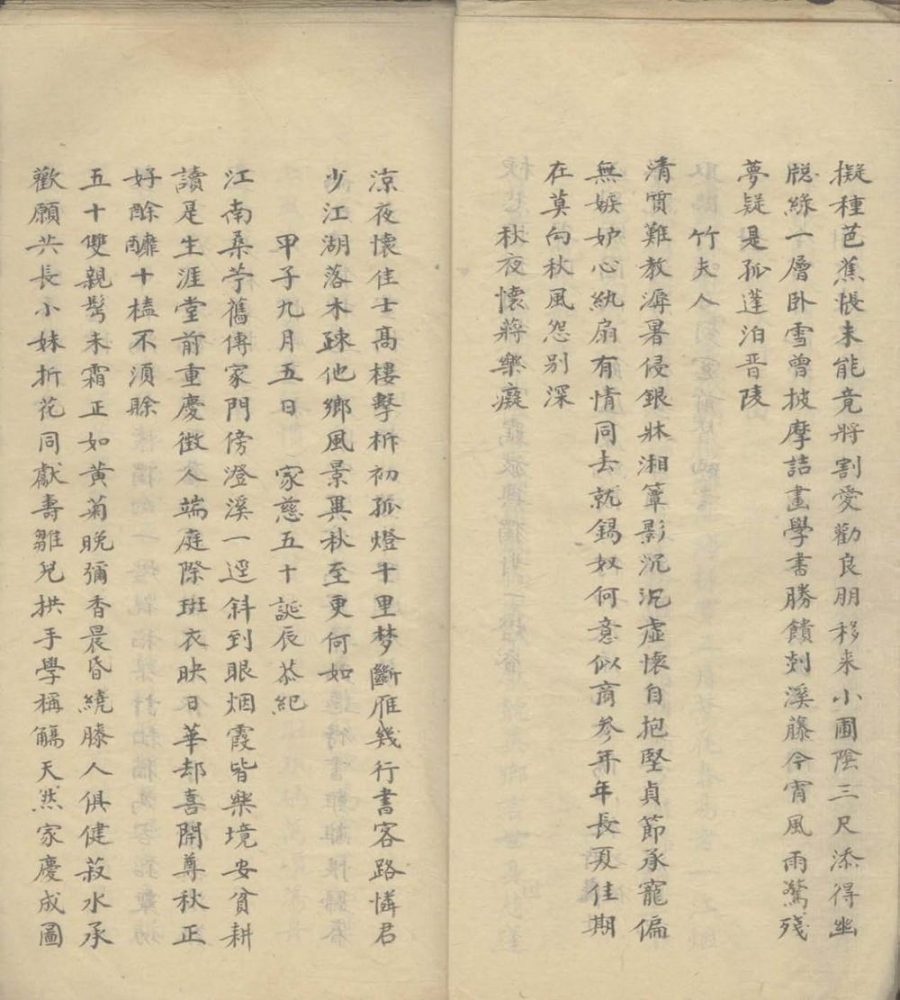 擬種芭蕉恨未能竟將割愛勸良朋移来小圃陰三尺添得幽
牕綠一層卧雪曾披摩詰畫學書勝饋剡溪藤今宵風雨驚殘
夢疑是孤蓬泊晋陵
竹夫人
清質難教溽暑侵銀牀湘簟影沉沉虛懷自抱堅貞節承寵偏
無嫉妒心紈扇有情同去就錫奴何意似商參年年長夏佳期
在莫向秋風怨别深
秋夜懷蔣樂癡
涼夜懷佳士高樓擊柝初孤燈千里梦斷雁幾行書客路憐君
少江湖落木疎他鄉風景異秋至更何如
甲子九月五日 家慈五十誕辰恭紀
江南桑苧舊傳家門傍澄溪一逕斜到眼烟霞皆樂境安貧耕
讀是生涯堂前重慶徴人端庭際斑衣映日華却喜開尊秋正
好酴醿十榼不須賖
五十雙親鬢未霜正如黄菊晚彌香晨昏繞膝人俱健菽水承
歡願共長小妹折花同獻壽雛兒拱手學稱觴天然家慶成圖